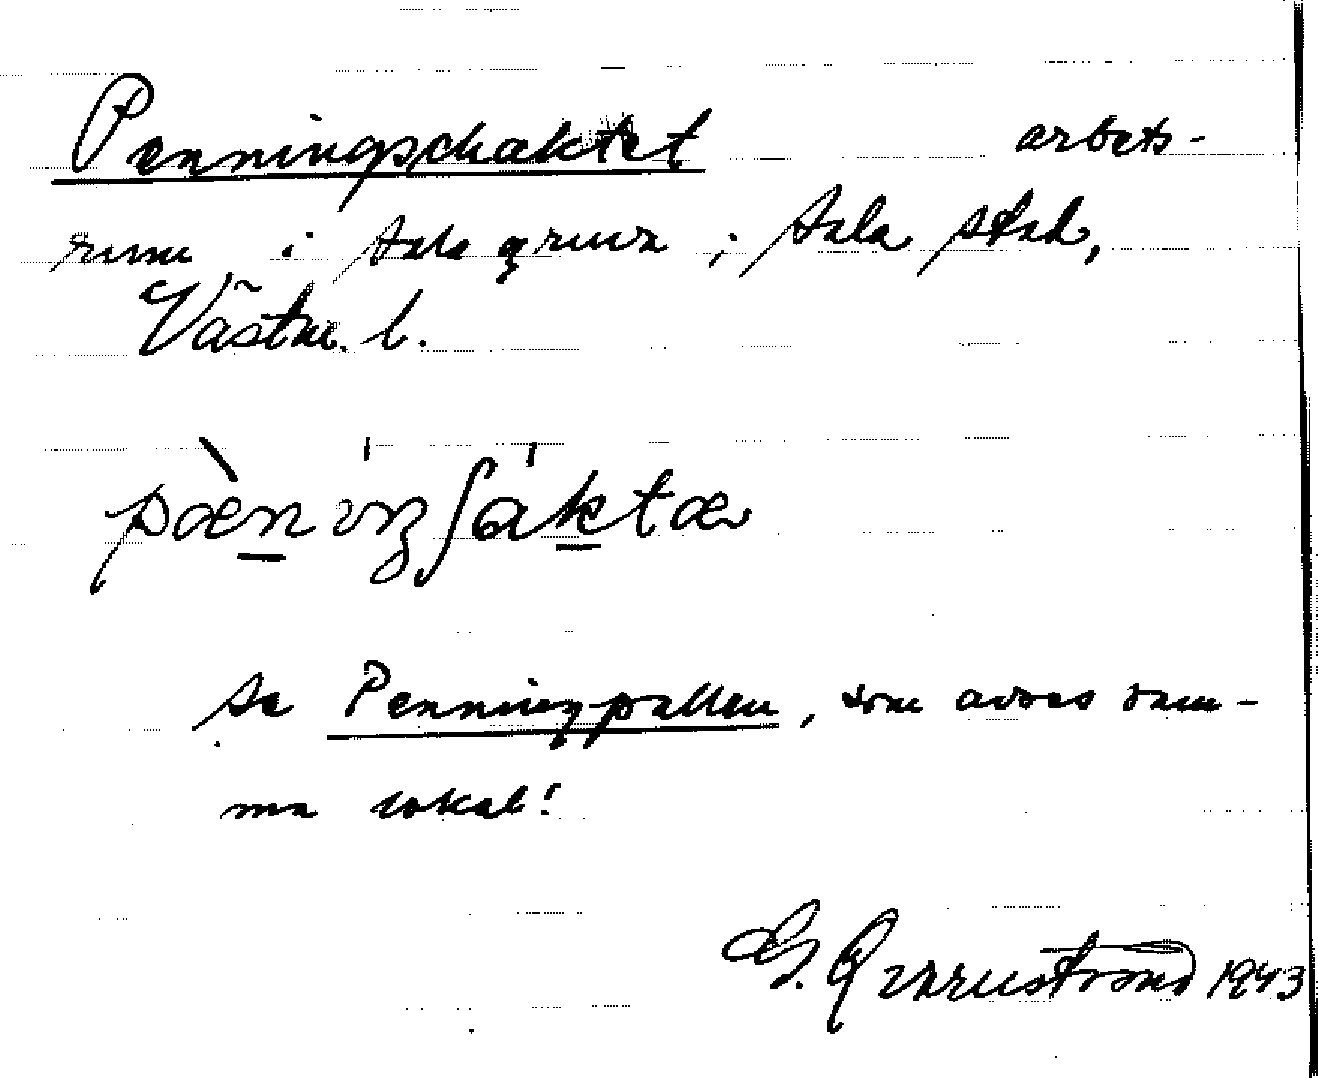 Penningschaktet arbets-
rum i Sala gruva i Sala stad,
Västm. l.
pæ̀nıŋʃáktæ
Se Penningpallen, som avses sam-
ma lokal!
G. Qvarnström 1943